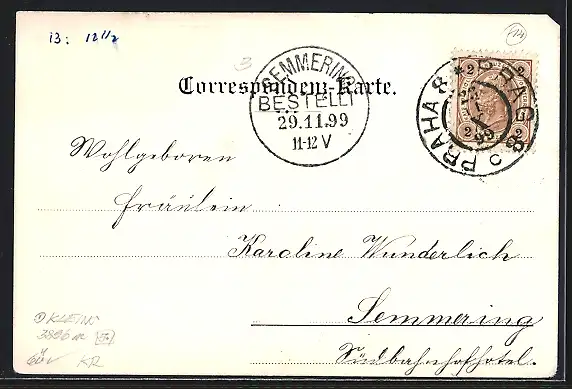 13: 12 1/2
74
3
Correspondenz-Karte.
SEMMERING
BESTELLT
29.11.99
11-12 V
PRAHA 8 * PRAG 8
C
99
2 2
2 2
Wohlgeboren
Fräulein
Karoline Wunderlich
Semmering
Südbahnhofhotel.
KR